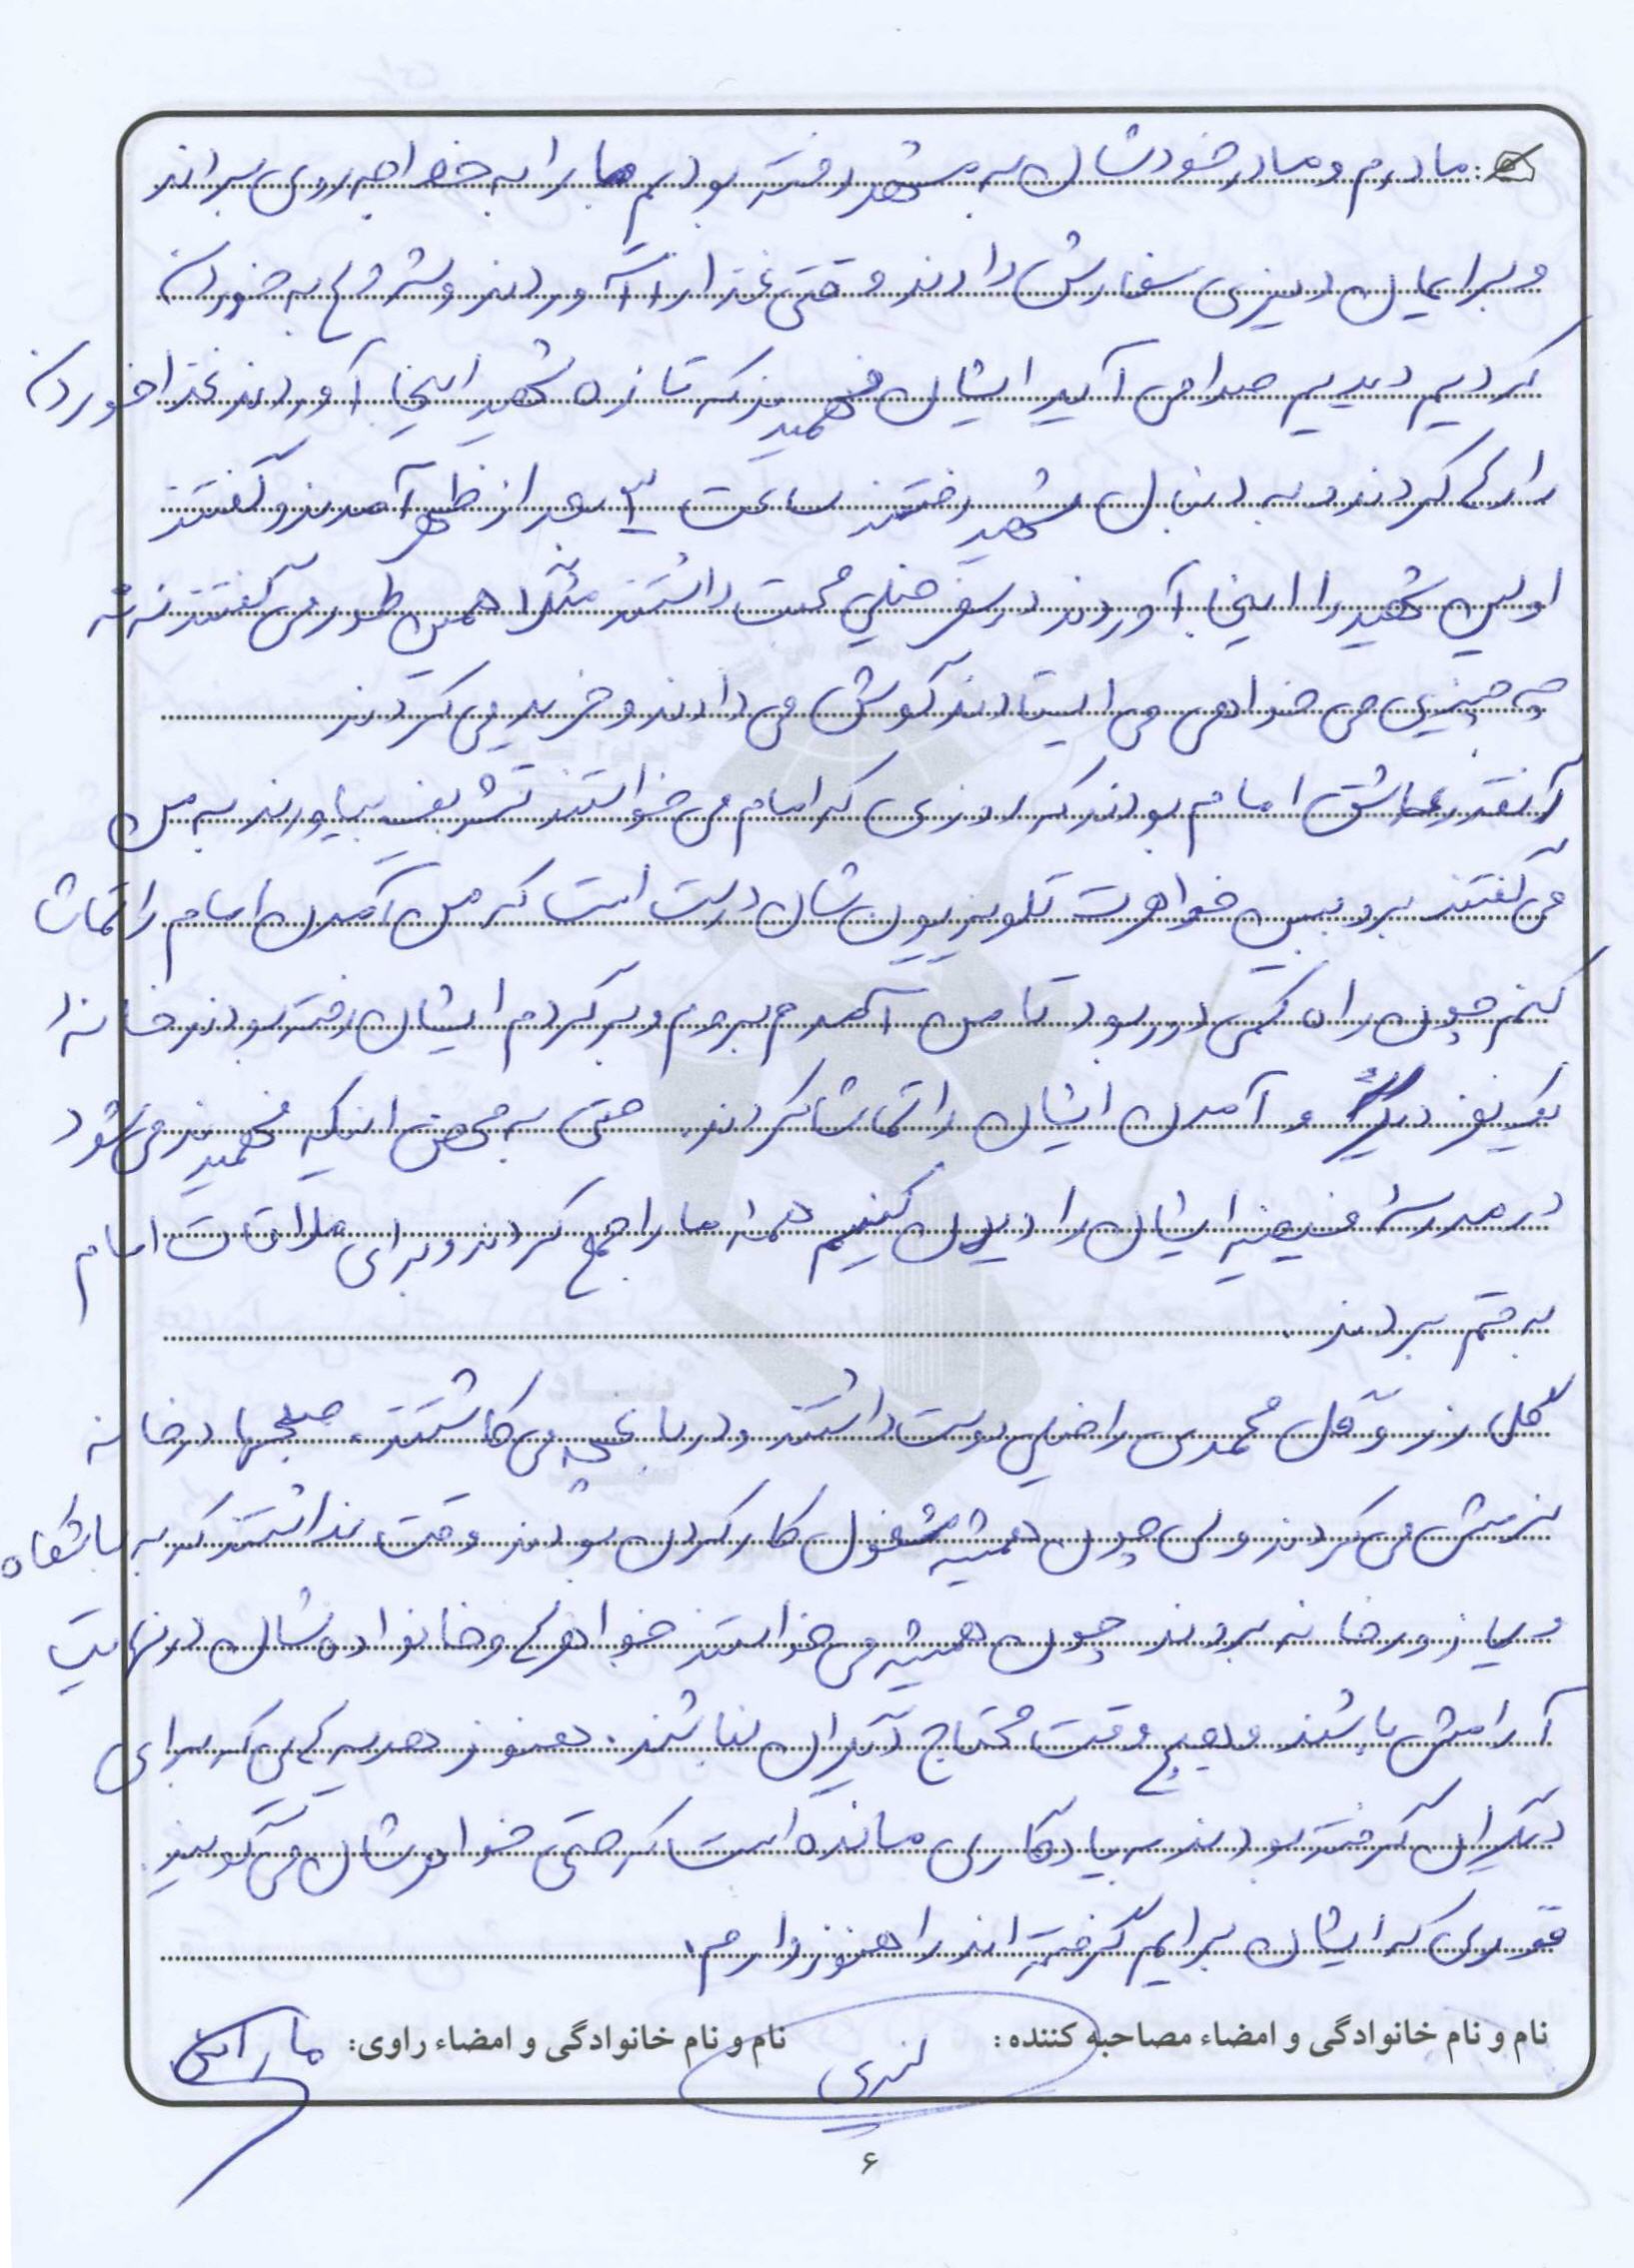 مادرم و مادر خودشان به مشهد رفته بودیم ما را به خواجه روی براند
و برایمان دیزی سفارش دادند وقتی غذا را آوردند و شروع به خوردن
کردیم دیدیم صدا می آید ایشان فهمیدند که تازه شهید اینجا آوردند غذا خوردن
را رها کردند و به دنبال شهید رفتند ساعت ۳ بعد از ظهر آمدند و گفتند
اولین شهید را اینجا آوردند در سفر خیلی محبت داشتند مثلا همین طور می گفتند ننه
چه چیزی می خواهی می ایستادند گوش می دادند و خرید می کردند
آنقدر عاشق امام بودند که روزی که امام می خواستند تشریف بیاورند به من
می گفتند برو ببین خواهرت تلویزیون شان درست است که من آمدن امام را تماشا
کنم چون راه کمی دور بود تا من آمدم بروم و برگردم ایشان رفته بودند خانه
یک نفر دیگر و آمدن ایشان را تماشا کردند. حتی به محض اینکه فهمیدند می شود
در مدرسه فیضیه ایشان را دیدن کنیم همه ما را جمع کردند و برای ملاقات امام
به قم بردند.
گل رز و گل محمدی را خیلی دوست داشتند و در باغچه می کاشتند. صبحها در خانه
نرمش می کردند ولی چون همیشه مشغول کار کردن بودند وقت نداشتند که به باشگاه
و یا زورخانه بروند چون همیشه می خواستند خواهر و خانواده شان در نهایت
آرامش باشند و هیچ وقت محتاج دیگران نباشند. هنوز هدیه هایی که برای
دیگران گرفته بودند به یادگاری مانده است که حتی خواهرشان می گویند
قوری که ایشان برایم گرفته اند را هنوز دارم.
نام و نام خانوادگی و امضاء مصاحبه کننده: نام و نام خانوادگی و امضاء راوی:
۶